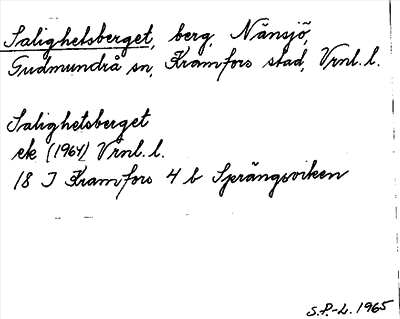 Salighetsberget, berg, Nänsjö,
Gudmundrå sn, Kramfors stad, Vrnl. l.
Salighetsberget
ek (1964) Vrnl. l.
18 I Kramfors 4 b Sprängsviken
S.P.-L. 1965